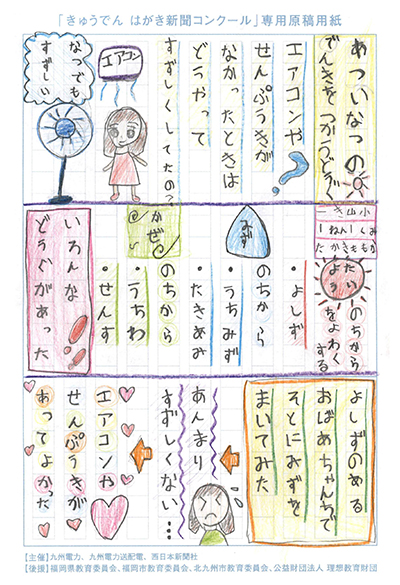 「きゅうでん はがき新聞コンクール」専用原稿用紙
あついなつの
でんきをつかうどうぐ
エアコンや
せんぷうきが
なかったときは
どうやって
すずしくしてたの?
エアコン
なつでも
すずしい
たい
よう
のちから
をよわく
する
・よしず
みず
のちから
・うちみず
・たきあみ
かぜ
のちから
・うちわ
・せんす
いろんな
どうぐがあった
よしずのある
おばあちゃんちで
そとにみずを
まいてみた
あんまり
すずしくない…
エアコンや
せんぷうきが
あってよかった
【主催】九州電力、九州電力送配電、西日本新聞社
【後援】福岡県教育委員会、福岡市教育委員会、北九州市教育委員会、公益財団法人 理想教育財団